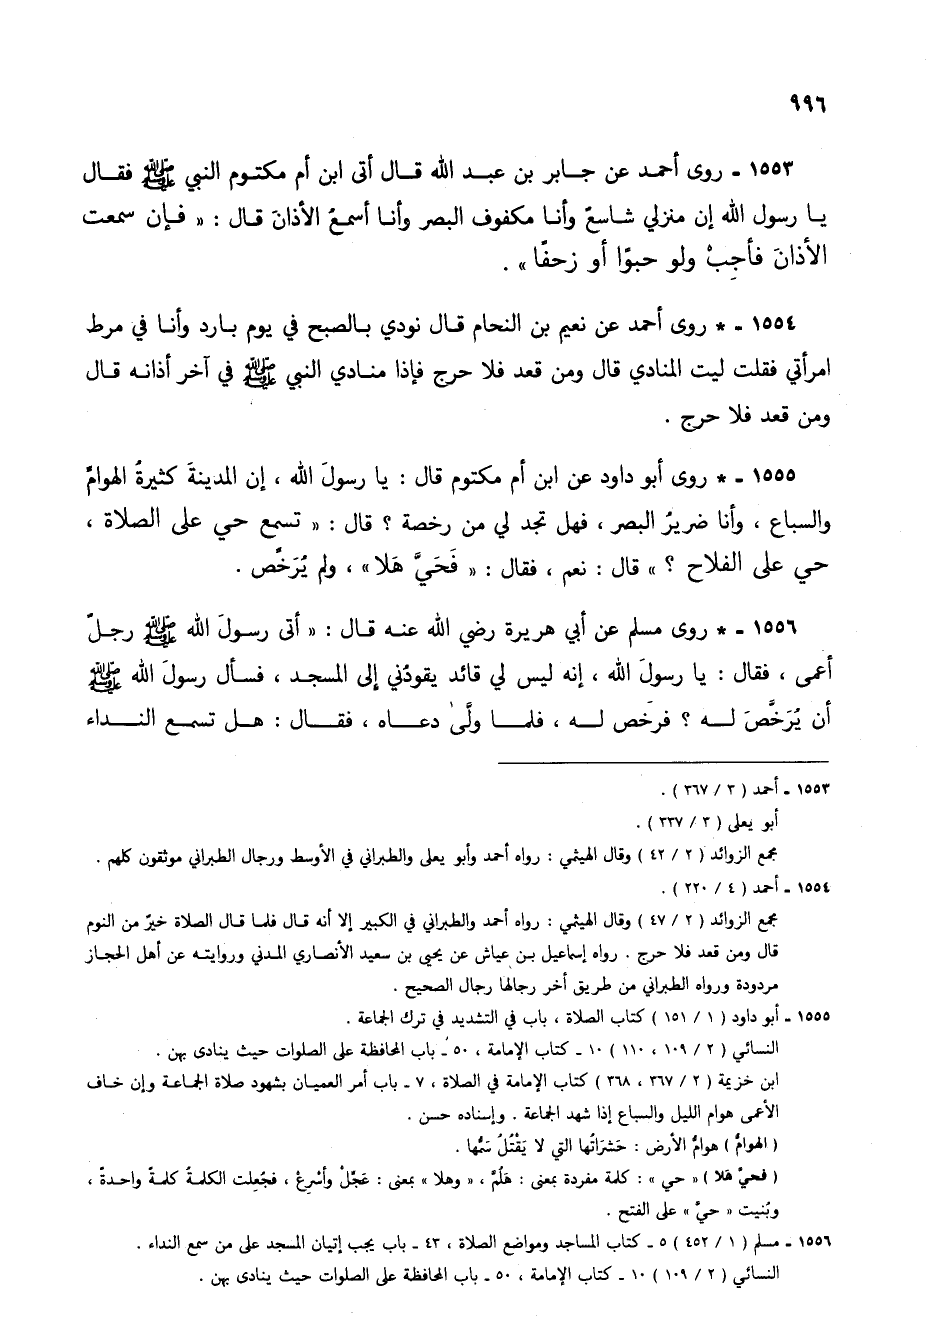 ٩٩٦
١٥٥٣ ـ روى أحمد عن جابر بن عبد الله قال أتى ابن أم مكتوم النبي ﷺ فقال
يا رسول الله إن منزلي شاسعٌ وأنا مكفوف البصر وأنا أسمعُ الأذانَ قال : « فإن سمعت
الأذانَ فأجِبْ ولو حبوًا أو زحفًا » .
١٥٥٤ ـ * روى أحمد عن نعيم بن النحام قال نودي بالصبح في يوم بارد وأنا في مرط
امرأتي فقلت ليت المنادي قال ومن قعد فلا حرج فإذا منادي النبي ﷺ في آخر أذانه قال
ومن قعد فلا حرج .
١٥٥٥ ـ * روى أبو داود عن ابن أم مكتوم قال : يا رسولَ الله ، إن المدينةَ كثيرةُ الهوامِّ
والسباع ، وأنا ضريرُ البصر ، فهل تجد لي من رخصة ؟ قال : « تسمع حي على الصلاة ،
حي على الفلاح ؟ » قال : نعم ، فقال : « فَحَيَّ هَلا » ، ولم يُرَخِّص .
١٥٥٦ ـ * روى مسلم عن أبي هريرة رضي الله عنه قال : « أتى رسولَ الله ﷺ رجلٌ
أعمى ، فقال : يا رسولَ الله ، إنه ليس لي قائد يقودُني إلى المسجد ، فسأل رسولَ الله ﷺ
أن يُرَخِّصَ له ؟ فرخَص له ، فلما ولَّى دعاه ، فقال : هل تسمع النداء
١٥٥٣ ـ أحمد ( ٣ / ٣٦٧ ) .
أبو يعلى ( ٣ / ٣٣٧ ) .
مجمع الزوائد ( ٢ / ٤٢ ) وقال الهيثمي : رواه أحمد وأبو يعلى والطبراني في الأوسط ورجال الطبراني موثقون كلهم .
١٥٥٤ ـ أحمد ( ٤ / ٢٢٠ ) .
مجمع الزوائد ( ٢ / ٤٧ ) وقال الهيثمي : رواه أحمد والطبراني في الكبير إلا أنه قال فلما قال الصلاة خيرٌ من النوم
قال ومن قعد فلا حرج . رواه إسماعيل بن عياش عن يحيى بن سعيد الأنصاري المدني وروايته عن أهل الحجاز
مردودة ورواه الطبراني من طريق أخر رجالها رجال الصحيح .
١٥٥٥ ـ أبو داود ( ١ / ١٥١ ) كتاب الصلاة ، باب في التشديد في ترك الجماعة .
النسائي ( ٢ / ١٠٩ ، ١١٠ ) ١٠ ـ كتاب الإمامة ، ٥٠ ـ باب المحافظة على الصلوات حيث ينادى بهن .
ابن خزيمة ( ٢ / ٣٦٧ ، ٣٦٨ ) كتاب الإمامة في الصلاة ، ٧ ـ باب أمر العميان بشهود صلاة الجماعة وإن خاف
الأعمى هوام الليل والسباع إذا شهد الجماعة . وإسناده حسن .
( الهوامُّ ) هوامُّ الأرض : حَشَرَاتُها التي لا يَقْتُلُ سَمُّها .
( فحيَّ هَلا ) « حي » : كلمة مفردة بمعنى : هَلُمَّ ، « وهلا » بمعنى : عَجِّلْ وأسْرِعْ ، فجُعِلت الكلمةُ كلمةً واحدةً ،
وبُنيت « حيَّ » على الفتح .
١٥٥٦ ـ مسلم ( ١ / ٤٥٢ ) ٥ ـ كتاب المساجد ومواضع الصلاة ، ٤٣ ـ باب يجب إتيان المسجد على من سمع النداء .
النسائي ( ٢ / ١٠٩ ) ١٠ ـ كتاب الإمامة ، ٥٠ ـ باب المحافظة على الصلوات حيث ينادى بهن .